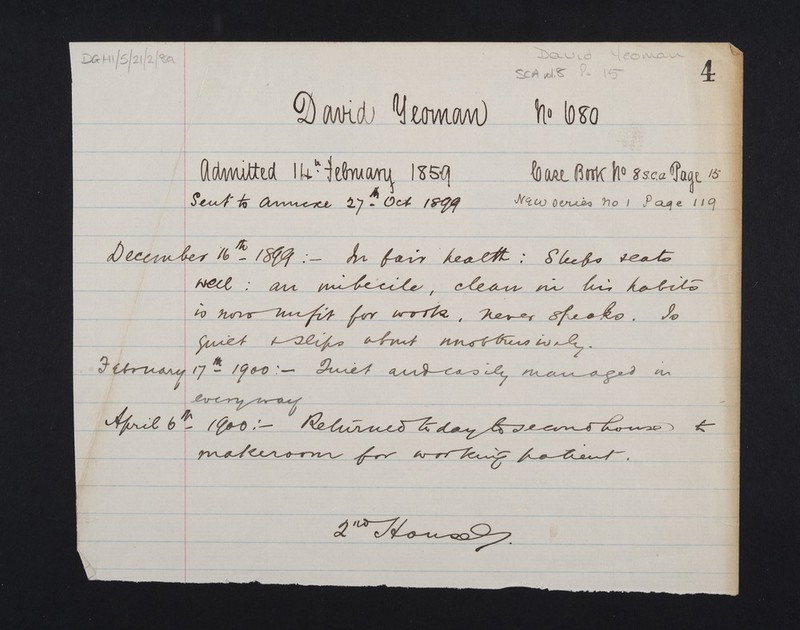 DGH1/5/21/2/8a
David Yeoman
SCA vol.8 P. 15
4
David Yeoman No 680
Admitted 14th February 1859 Case Book No 8 SCA Page 15
Sent to Annexe 27th Oct 1899 New Series No 1 Page 119
December 16th 1899 :- In fair health : Sleeps & eats
well : an imbecile, clean in his habits
is now unfit for work, never speaks. Is
quiet & slips about unobtrusively.
February 17th 1900 :- Quiet and easily managed in
every way
April 6th 1900 :- Returned to day to second house to
make room for working patient.
2nd House